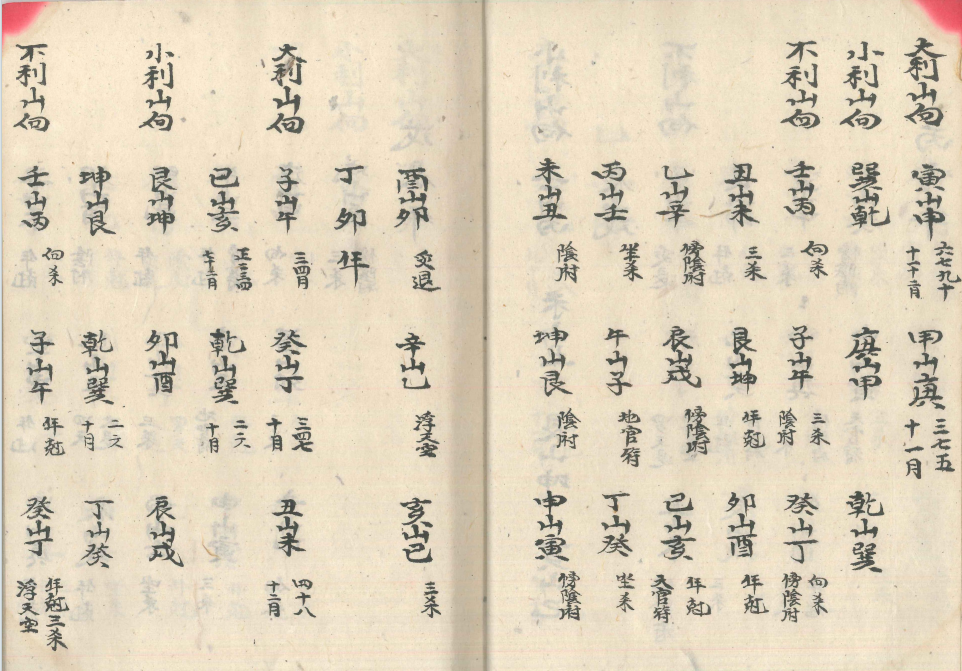 大利山向 寅山申 六七九十 甲山庚 三七五 十一月
小利山向 巽山乾 庚山甲 乾山巽
不利山向 壬山丙 向杀 子山午 三杀 陰府 癸山丁 向杀 傍陰府
丑山未 三杀 艮山坤 年尅 卯山酉 年尅
乙山辛 傍陰府 辰山戌 傍陰府 巳山亥 年尅 天官符
丙山壬 坐杀 午山子 地官符 丁山癸 坐杀
未山丑 陰府 坤山艮 陰府 申山寅 傍陰府
酉山卯 灸退 辛山乙 浮天空 亥山巳 三杀
丁卯年
大利山向 子山午 三四月 癸山丁 三四七 十月 丑山未 四十八 十二月
巳山亥 乾山巽 二六 十月
小利山向 艮山坤 卯山酉 辰山戌
坤山艮 乾山巽 二六 十月 丁山癸
不利山向 壬山丙 向杀 子山午 年尅 癸山丁 年尅三杀 浮天空